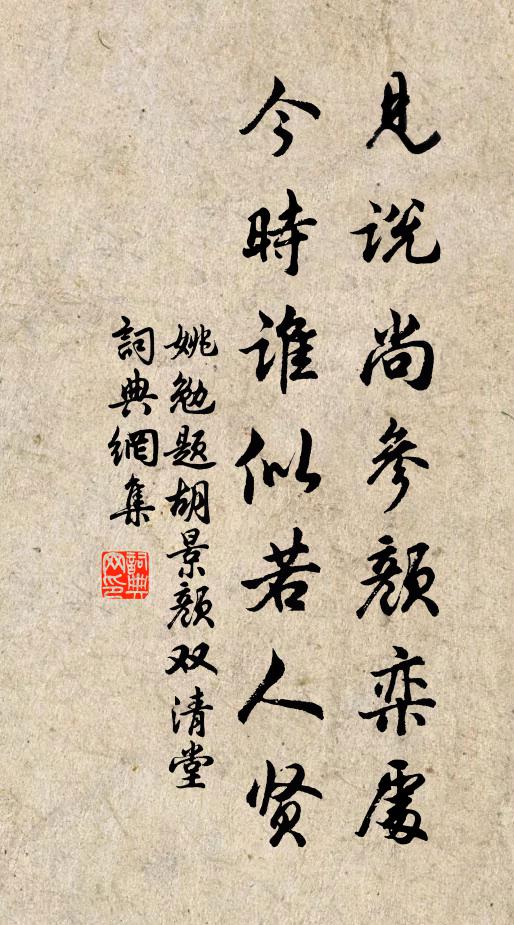 見说尚參顔奕處
今時誰似若人贤
姚勉题胡景颜双清堂
詞典網集
詞典网印